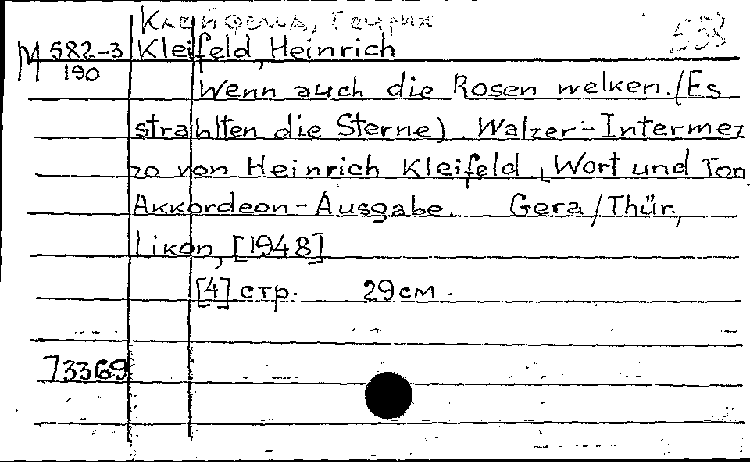 Клейфельд, Генрих
538
М 582-3
190
Kleifeld, Heinrich
Wenn auch die Rosen welken. (Es
strahlten die Sterne). Walzer-Intermez
zo von Heinrich Kleifeld, Wort und Ton
Akkordeon-Ausgabe. Gera/Thür,
Likon, [1948]
[4] стр. 29 см.
73369